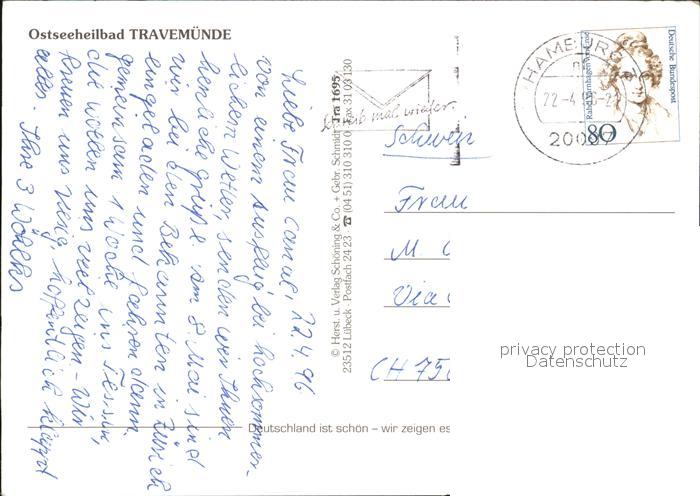 Ostseeheilbad TRAVEMÜNDE
Liebe Frau 22.4.96
von einem Ausflug bei hochsommer-
lichem Wetter, senden wir Ihnen
herzliche Grüße. Am 8 Mai sind
wir bei den Bekannten in Zürich
eingeladen und fahren dann
gemeinsam 1 Woche ins Tessin,
die wollen uns viel zeigen - Wir
freuen uns riesig, hoffentlich klappt
alles. Ihre 3
© Herst. u. Verlag Schöning & Co. + Gebr. Schmidt Tra 1695
23512 Lübeck · Postfach 24 23 · ☎ (04 51) 310 310 Fax 31 03 130
Schreib mal wieder.
HAMBURG
22-4
20097
Deutsche Bundespost
Rahel Varnhagen von Ense
80
Schweiz
Frau
M
Via
CH 75
Deutschland ist schön – wir zeigen es
privacy protection
Datenschutz